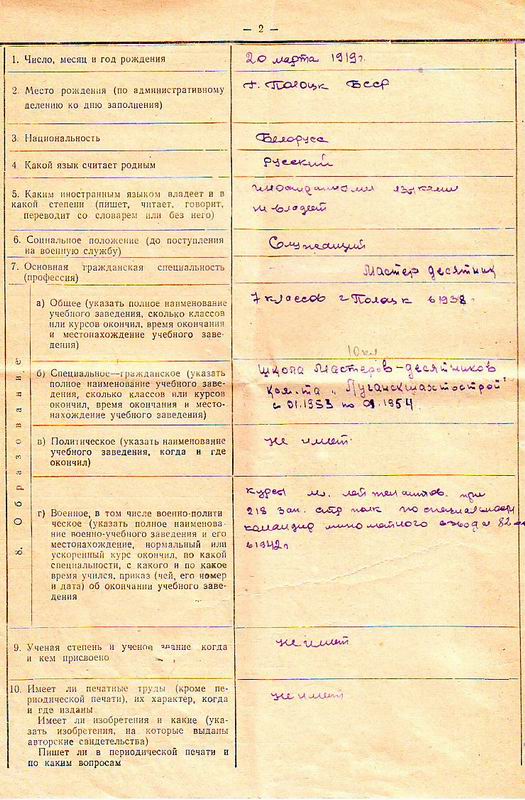 — 2 —
1. Число, месяц и год рождения
20 марта 1919г.
2. Место рождения (по административному
делению ко дню заполнения)
г. Полоцк БССР
3. Национальность
Белорусс
4. Какой язык считает родным
Русский
5. Каким иностранным языком владеет и в
какой степени (пишет, читает, говорит,
переводит со словарем или без него)
иностранными языками
не владеет
6. Социальное положение (до поступления
на военную службу)
Служащий
7. Основная гражданская специальность
(профессия)
Мастер десятник
8. Образование
а) Общее (указать полное наименование
учебного заведения, сколько классов
или курсов окончил, время окончания
и местонахождение учебного заве-
дения)
7 классов г Полоцк в 1938.
10 кл
б) Специальное—гражданское (указать
полное наименование учебного заве-
дения, сколько классов или курсов
окончил, время окончания и место-
нахождение учебного заведения)
Школа Мастеров-десятников
Ком-та „Луганскшахтострой"
с 01.1953 по 01.1954.
в) Политическое (указать наименование
учебного заведения, когда и где
окончил)
не имеет
г) Военное, в том числе военно-полити
ческое (указать полное наименова-
ние военно-учебного заведения и его
местонахождение, нормальный или
ускоренный курс окончил, по какой
специальности, с какого и по какое
время учился, приказ (чей, его номер
и дата) об окончании учебного заве-
дения
курсы мл. лейтенантов при
218 зап. стр полк по специальности
командир минометного взвода 82-мм
в 1942г
9. Ученая степень и ученое звание когда
и кем присвоено
не имеет
10. Имеет ли печатные труды (кроме пе-
риодической печати), их характер, когда
и где изданы
Имеет ли изобретения и какие (ука-
зать изобретения, на которые выданы
авторские свидетельства)
Пишет ли в периодической печати и
по каким вопросам
не имеет